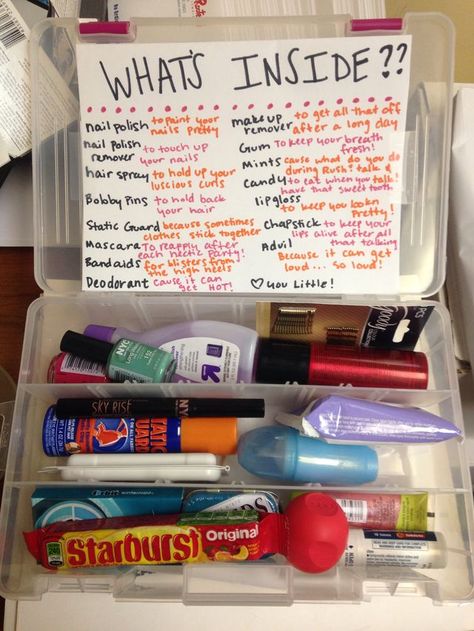 WHAT'S INSIDE??
nail polish to paint your nails pretty
nail polish remover to touch up your nails
hair spray to hold up your luscious curls
Bobby Pins to hold back your hair
Static Guard because sometimes clothes stick together
Mascara To reapply after each hectic party!
Bandaids for blisters from the high heels
Deodorant cause it can get HOT!
makeup remover to get all that off after a long day
Gum To keep your breath fresh!
Mints cause what do you do during Rush? talk &
Candy to eat when you talk! have that sweet tooth
lipgloss to keep you lookn Pretty!
Chapstick to keep your lips alive after all that talking
Advil Because it can get loud... so loud!
♡ You Little!
goody
PCS
NYC
SKY RISE
STATIC GUARD
Orbit
Starburst Original